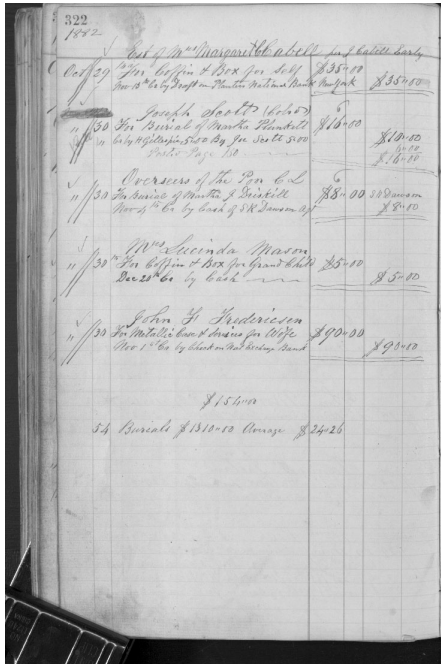 322
1882
Est of Mrs Margaret Cabell per J Cabell Early
Oct 29 For Coffin & Box for Self $35=00
Nov 13th Cr by Draft on Planters National Bank New York $35=00
Joseph Scott (Cold)
" 30 For Burial of Martha Plunkett $16=00
" Cr by H Gillespie 5=00 By Joe Scott 5=00 $10=00
6=00
Page 150 $16=00
Overseers of the Poor C L
" 30 For Burial of Martha J Driskill $8=00 S R Dawson
Nov 4th Cr by Cash of S R Dawson Agt $8=00
Mrs Lucinda Mason
" 30th For Coffin & Box for Grand Child $5=00
Dec 20th Cr by Cash $5=00
John F Fredericsen
" 30 For Metallic Case & Services for Wife $90=00
Nov 1st Cr by Check on Nat Exchange Bank $90=00
$154=00
54 Burials $1310=00 Average $24=26